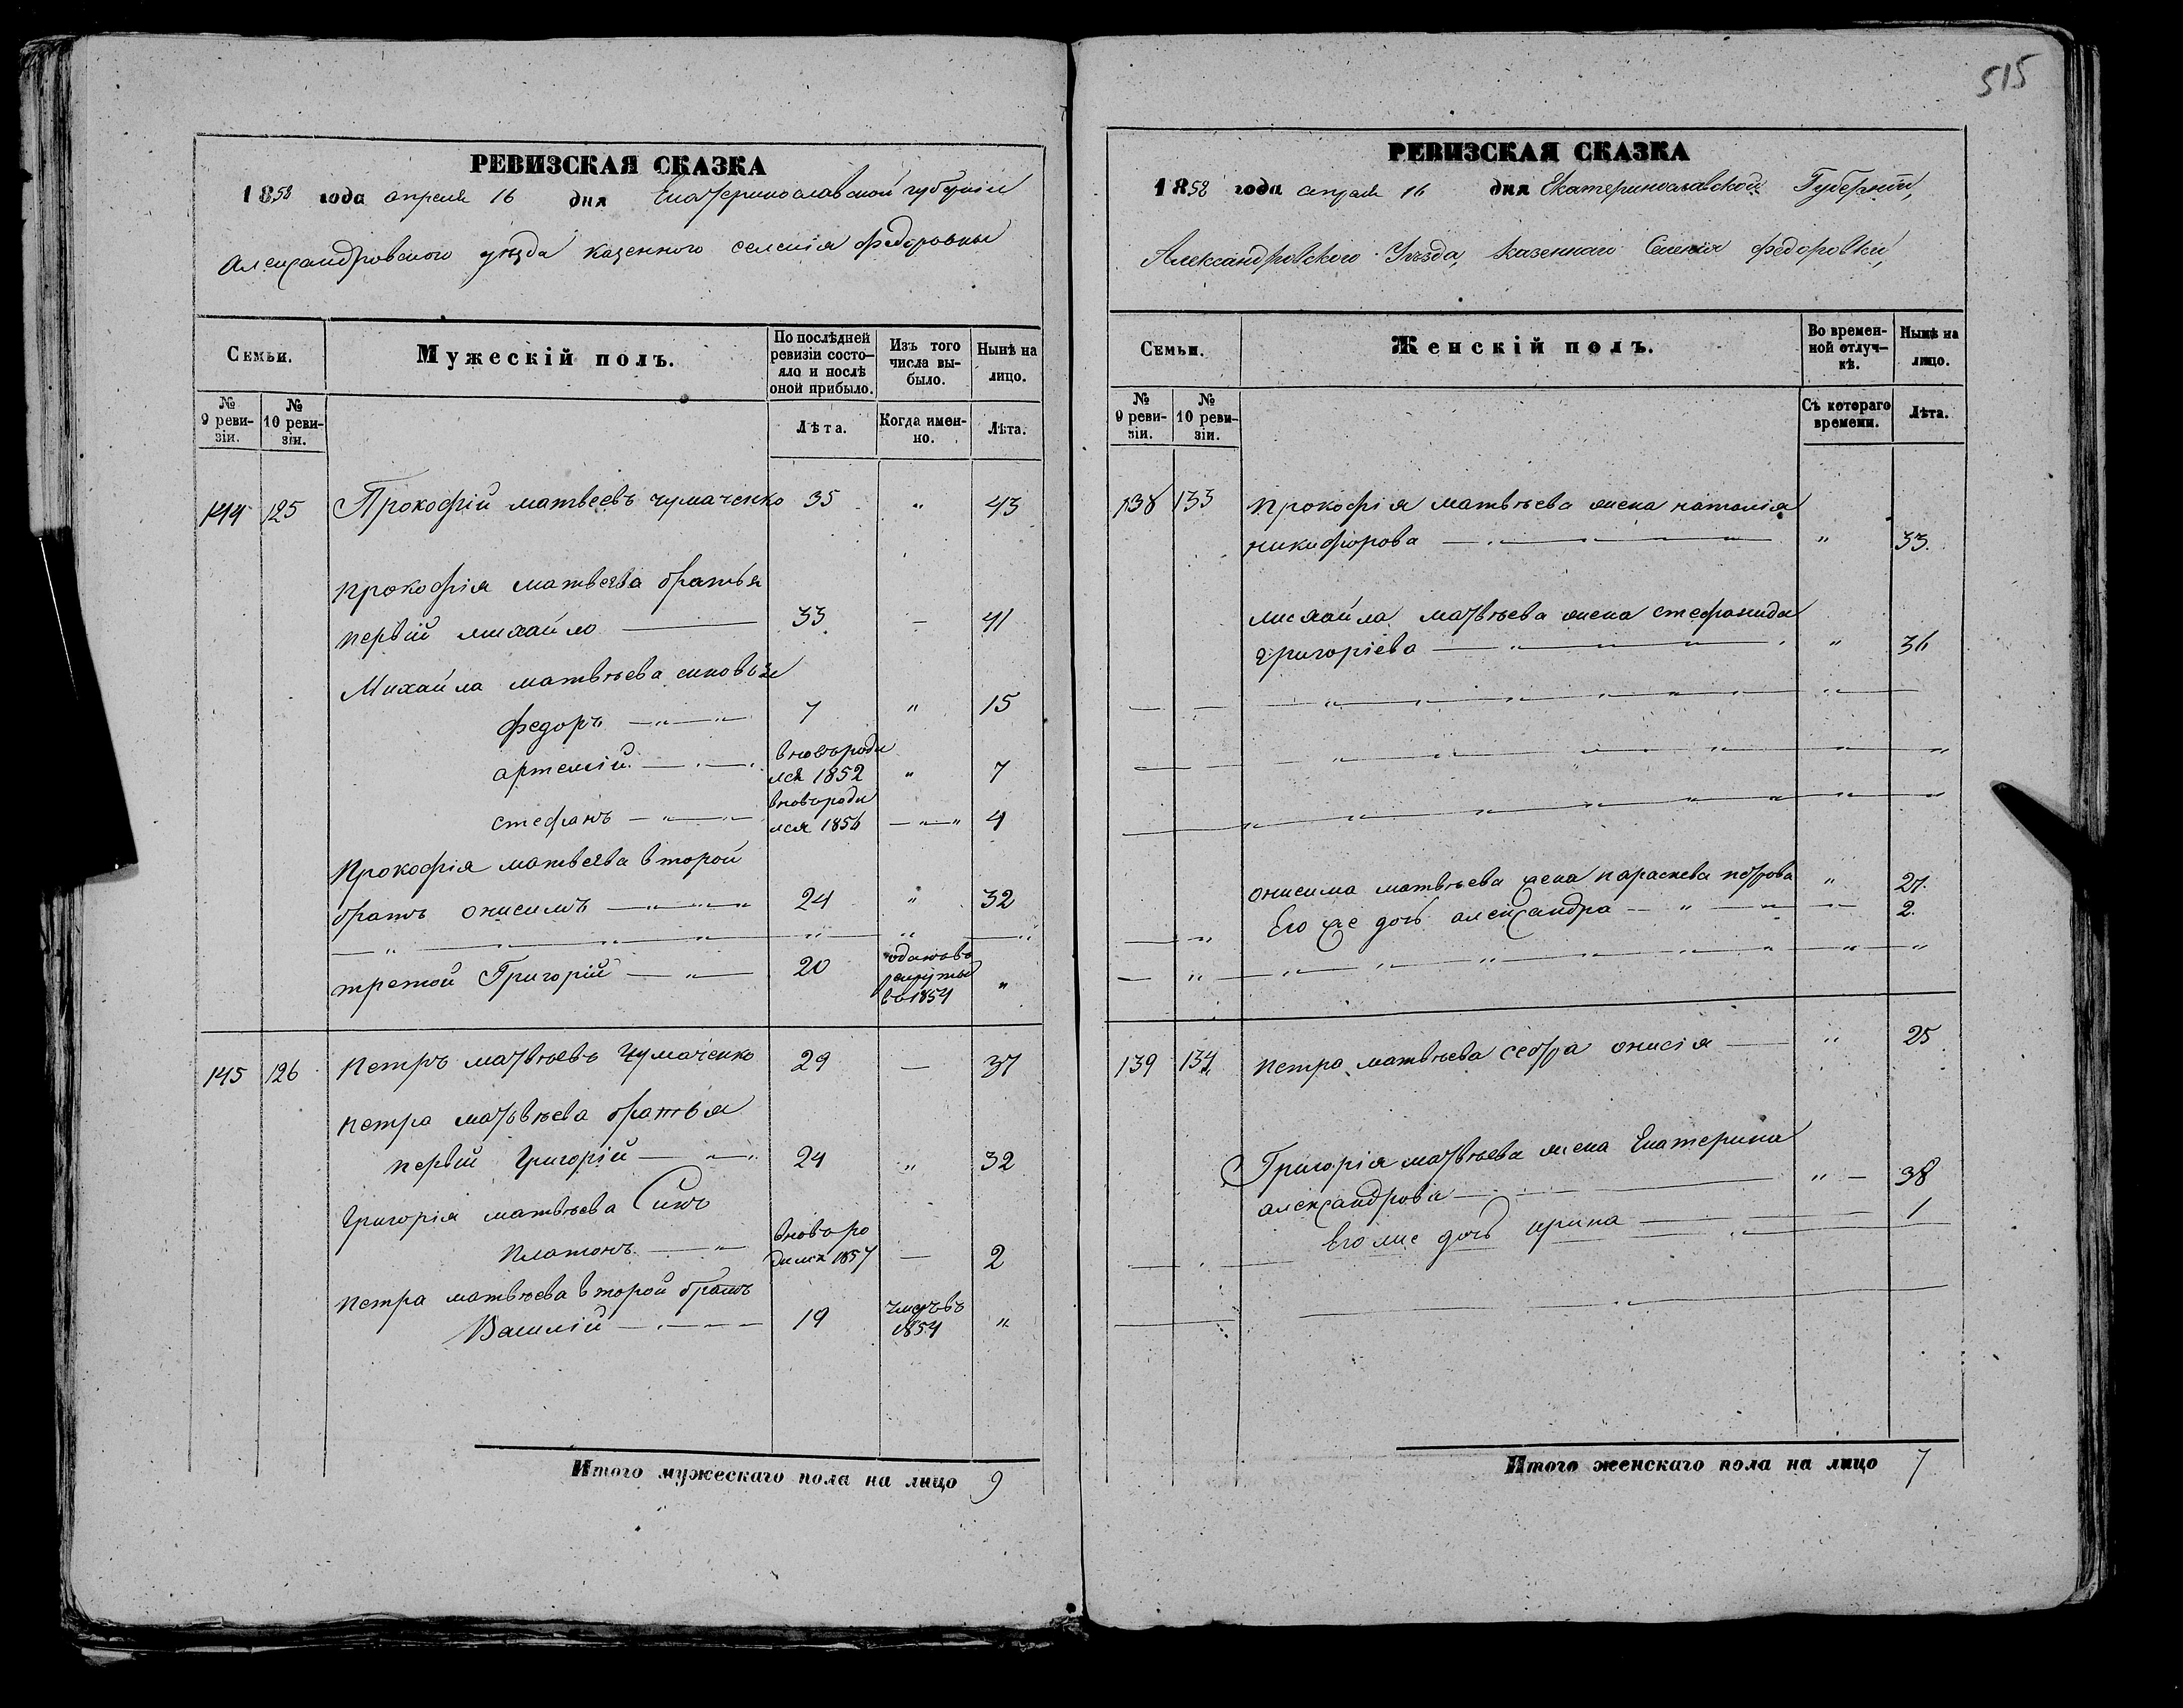 515
РЕВИЗСКАЯ СКАЗКА
1858 года апреля 16 дня Екатеринославской губерніи
Александровского уезда казенного селенія федоровки
Семьи.
Мужескій полъ.
По послѣдней ревизіи состо-яло и послѣ оной прибыло.
Изъ того числа вы-было.
Нынѣ на лицо.
№ 9 реви-зіи.
№ 10 реви-зіи.
Лѣта.
Когда имен-но.
Лѣта.
144 125 Прокофій матвеевъ чумаченко 35 " 43
прокофія матвеева братья
первій михайло 33 — 41
Михайла матвѣева синовья
федоръ 7 " 15
артемій вновьроди
лся 1852 " 7
стефанъ вновьроди
лся 1856 " 4
Прокофія матвеева второй
братъ онисимъ 24 " 32
третой Григорій 20 оданъвъ рекруты во1854 "
145 126 петръ матвѣевъ Чумаченко 29 — 37
петра матвѣева братья
первій Григорій 24 " 32
Григорія матвѣева Синъ
платонъ вновьро
дился 1857 — 2
петра матвѣева второй братъ
Василій 19 умеръвъ 1854 "
Итого мужескаго пола на лицо 9
РЕВИЗСКАЯ СКАЗКА
1858 года апреля 16 дня Екатеринославской Губерніи,
Александровского Уѣзда, казеннаго Селенія федоровки,
Семьи.
Женскій полъ.
Во времен-ной отлуч-кѣ.
Нынѣ на лицо.
№ 9 реви-зіи.
№ 10 реви-зіи.
Съ котораго времени.
Лѣта.
138 133 прокофія матвѣева жена наталія
никифорова " 33.
михайла матвѣева жена стефанида
григоріева " 36
онисима матвѣева жена параскева петрова " 27.
Его же дочь александра 2.
139 134 петра матвѣева сестра онисія " 25
Григорія матвѣева жена Екатерина
александрова " 38
Его же дочь ирина 1
Итого женскаго пола на лицо 7